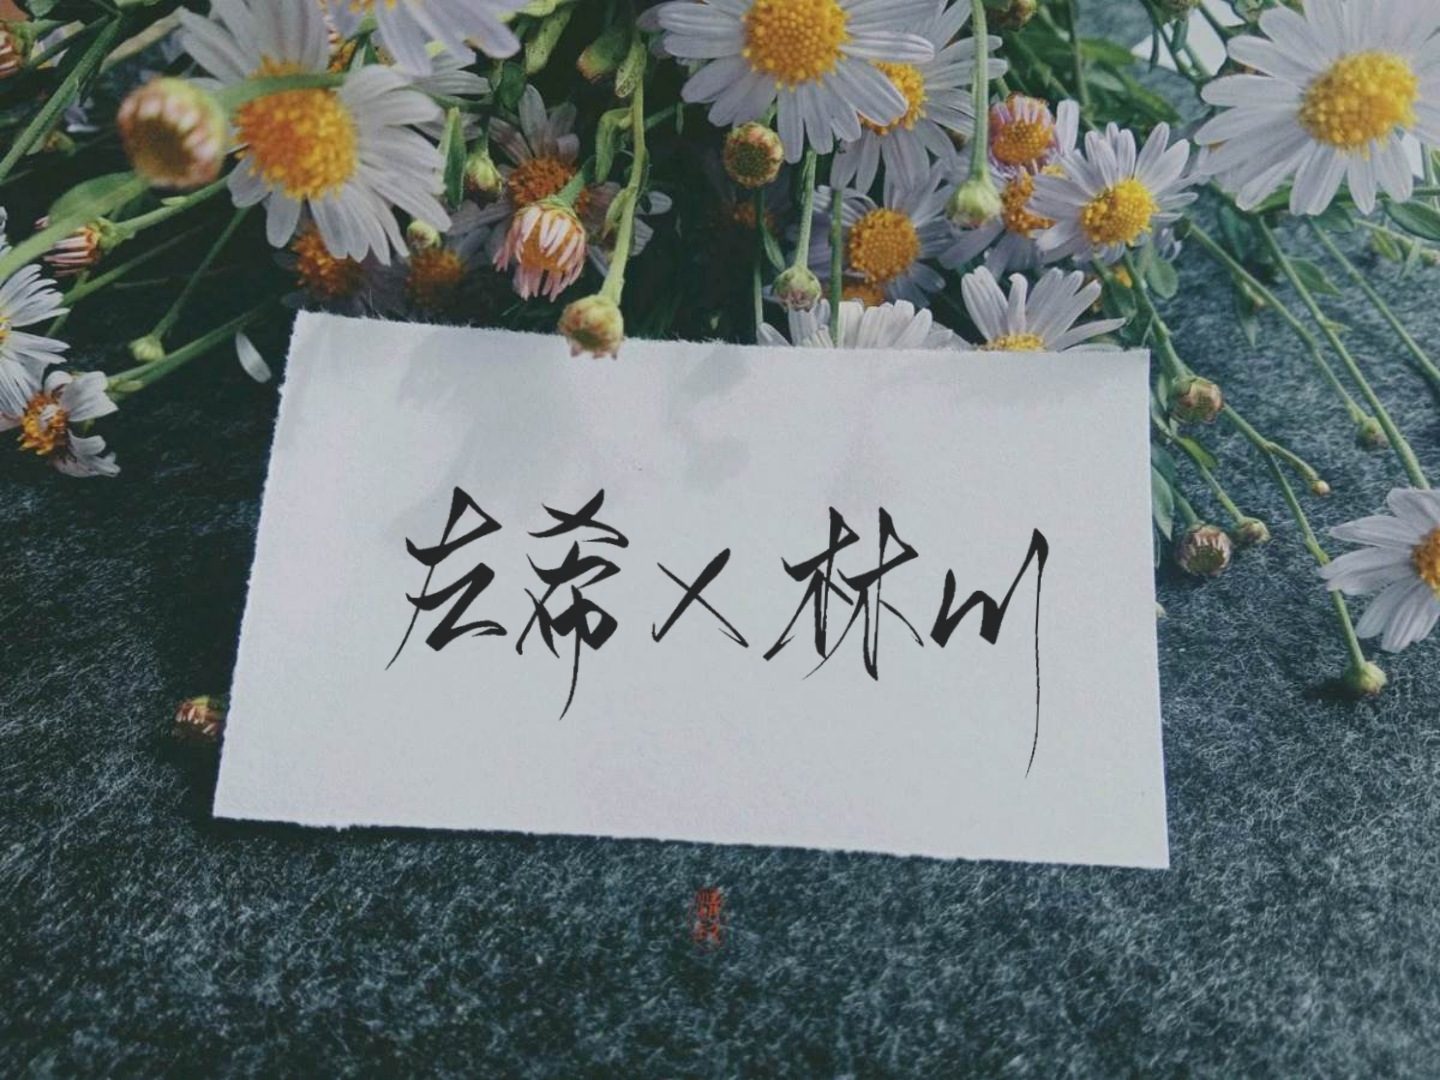 左希×林川